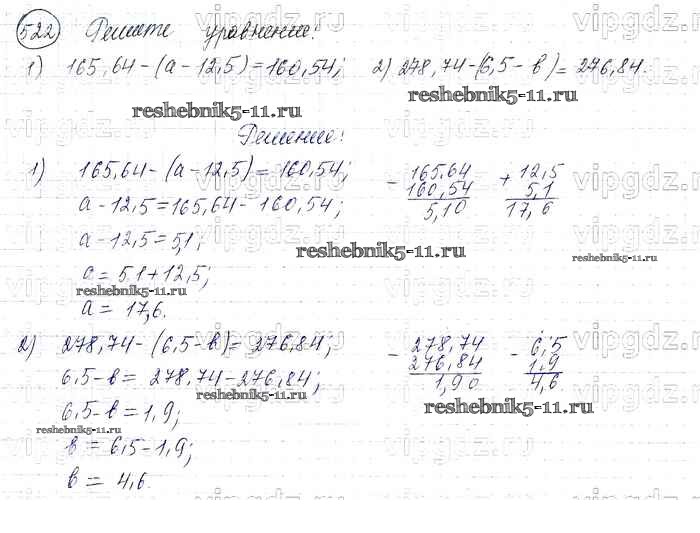 522 Решите уравнение:
1) 165,64-(a-12,5)=160,54; 2) 278,74-(6,5-в)=276,84.
Решение:
1) 165,64-(a-12,5)=160,54;
a-12,5=165,64-160,54;
a-12,5=5,1;
a=5,1+12,5;
a=17,6.
-165,64
160,54
5,10
+12,5
5,1
17,6
2) 278,74-(6,5-в)=276,84;
6,5-в=278,74-276,84;
6,5-в=1,9;
в=6,5-1,9;
в=4,6.
-278,74
276,84
1,90
-6,5
1,9
4,6
reshebnik5-11.ru
reshebnik5-11.ru
reshebnik5-11.ru
reshebnik5-11.ru
reshebnik5-11.ru
reshebnik5-11.ru
reshebnik5-11.ru
reshebnik5-11.ru
vipgdz.ru